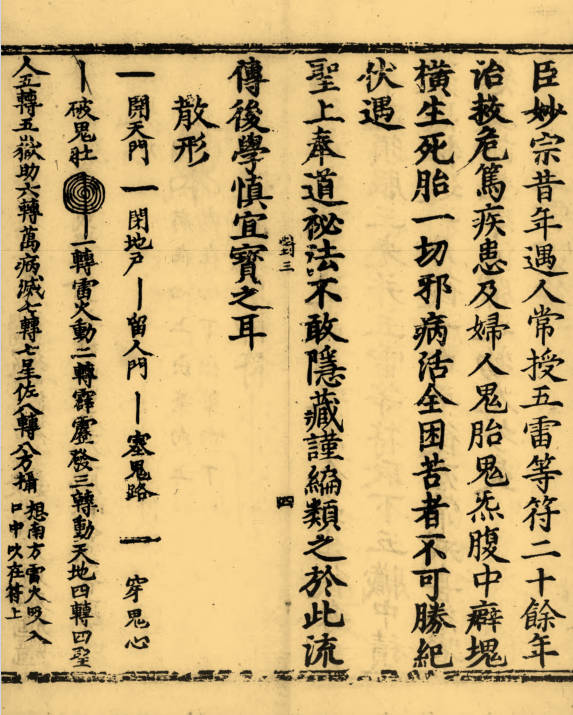 臣妙宗昔年遇人常授五雷等符二十餘年
治救危篤疾患及婦人鬼胎鬼炁腹中癖塊
橫生死胎一切邪病活全困苦者不可勝紀
伏遇
聖上奉道祕法不敢隱藏謹編類之於此流
對三
四
傳後學慎宜寳之耳
散形
開天門 閉地戶 留人門 塞鬼路 穿鬼心
破鬼肚 一轉雷火動二轉霹靂發三轉動天地四轉四聖
人五轉五嶽助六轉萬病滅七轉七星佐八轉八方攝 想南方雷火吸入
口中吹在符上